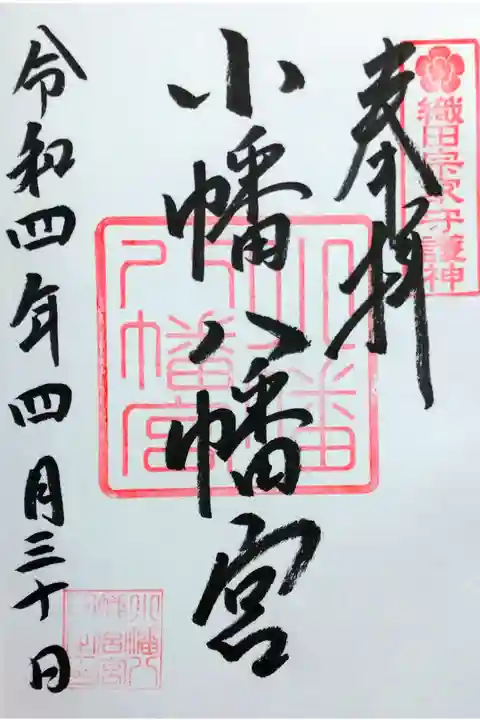 織田宗家守護神
奉拝
小幡八幡宮
小幡
八幡宮
令和四年四月三十日